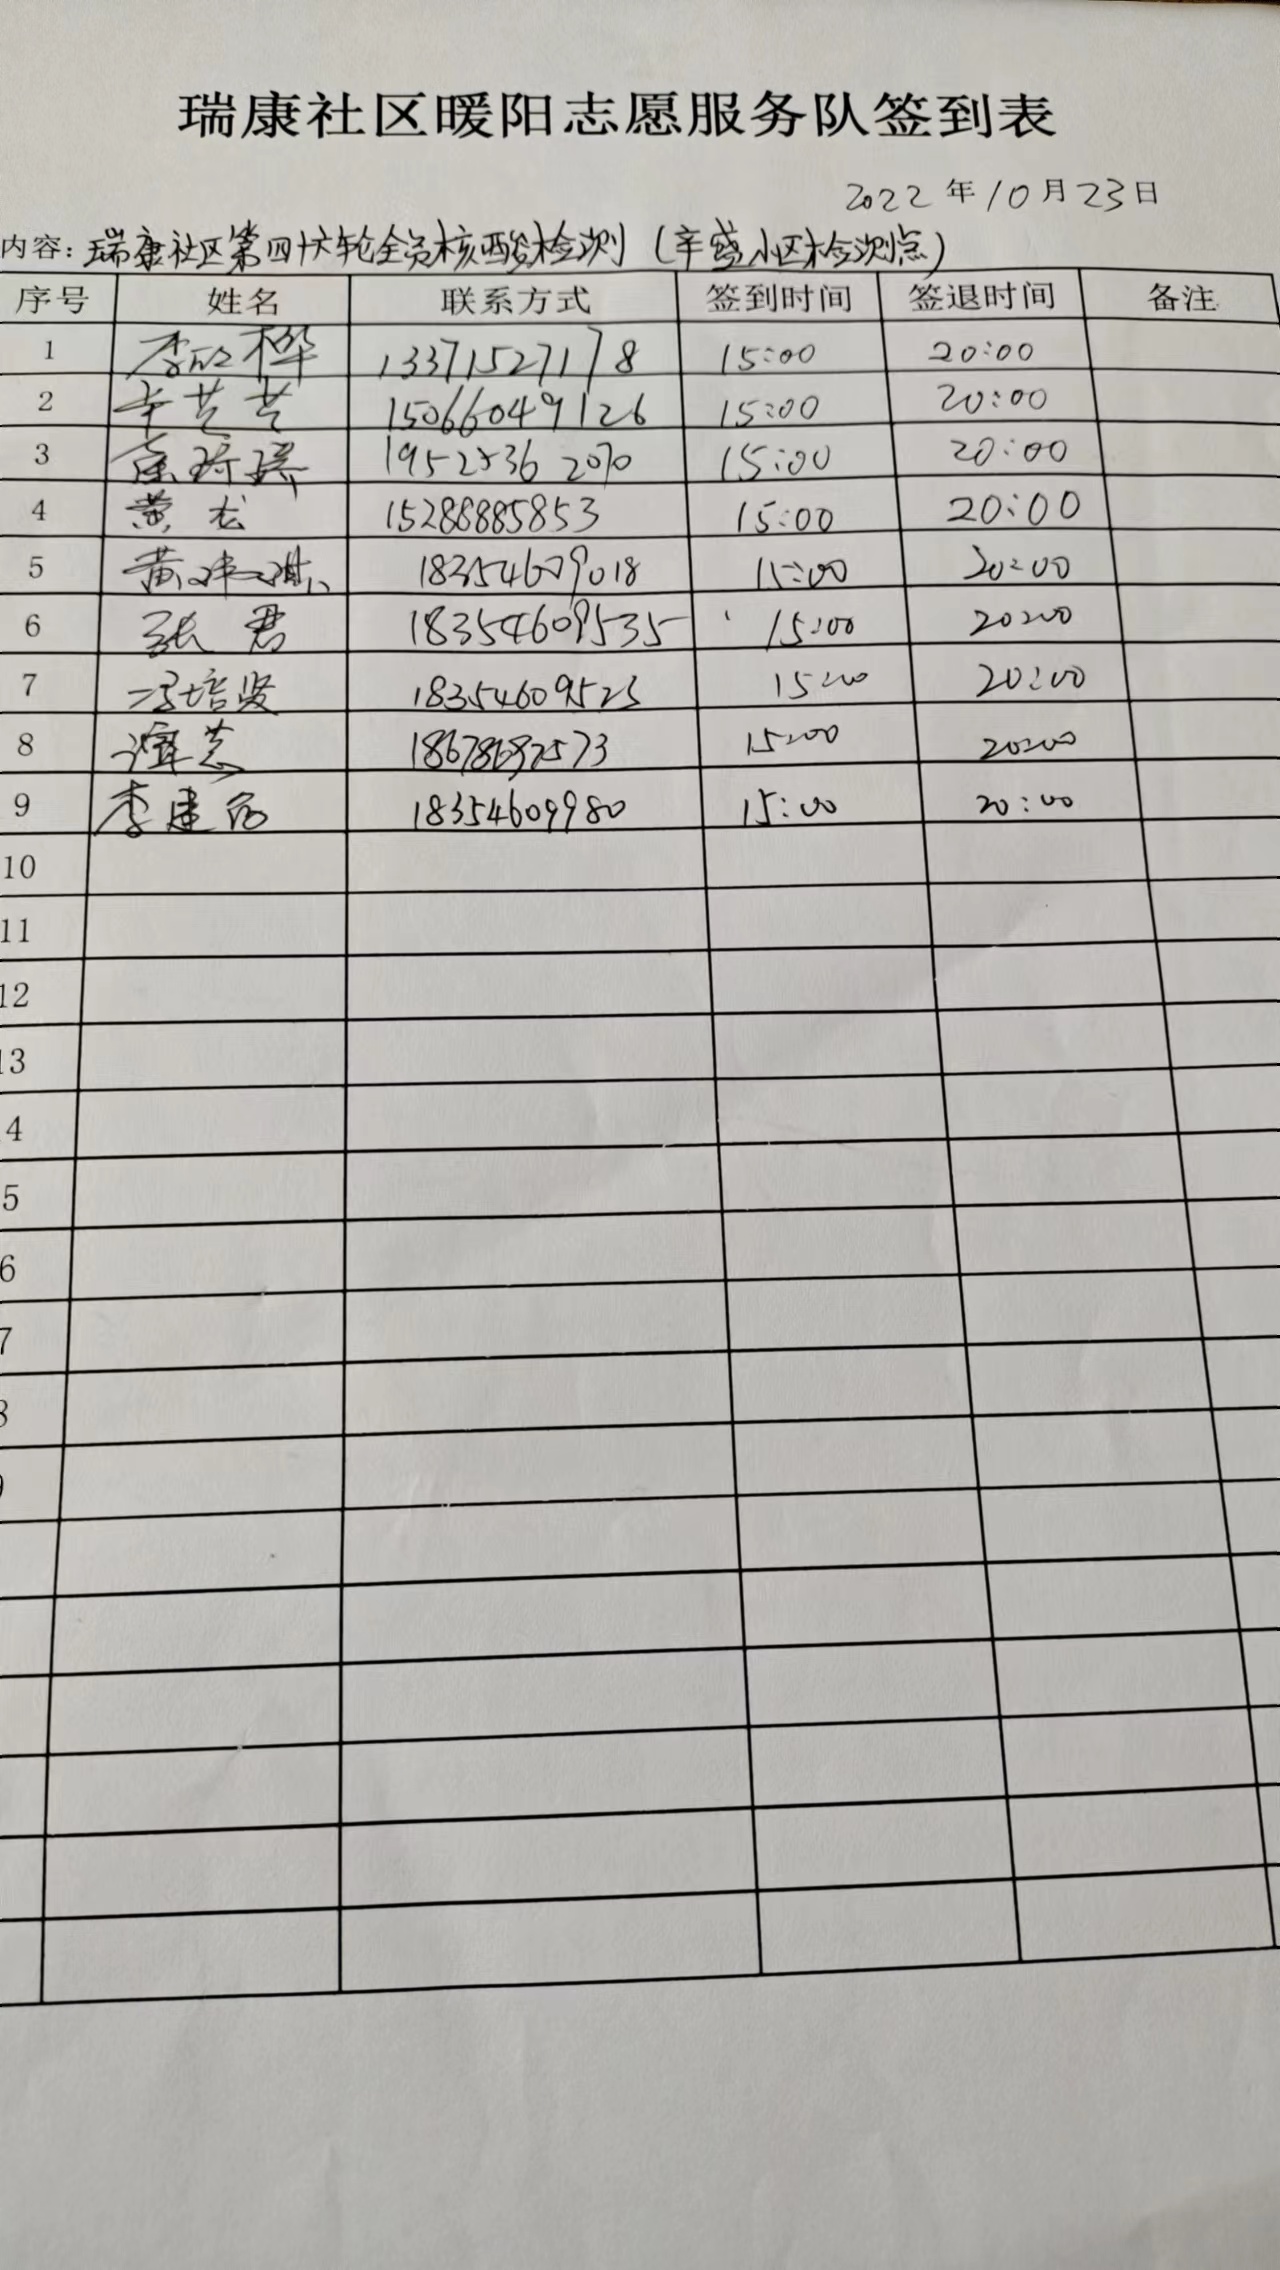 瑞康社区暖阳志愿服务队签到表
2022年10月23日
内容：瑞康社区第四十六轮全员核酸检测（辛盛小区检测点）
序号 姓名 联系方式 签到时间 签退时间 备注
1 李欣桦 13371527178 15:00 20:00
2 辛芸芸 15066049126 15:00 20:00
3 15:00 20:00
4 黄龙 15288885853 15:00 20:00
5 黄 18354609018 15:00 20:00
6 张君 18354609535 15:00 20:00
7 冯培贤 18354609523 15:00 20:00
8 谭芸 15:00 20:00
9 李建 18354609980 15:00 20:00
10
11
12
13
4
5
6
7
8
9